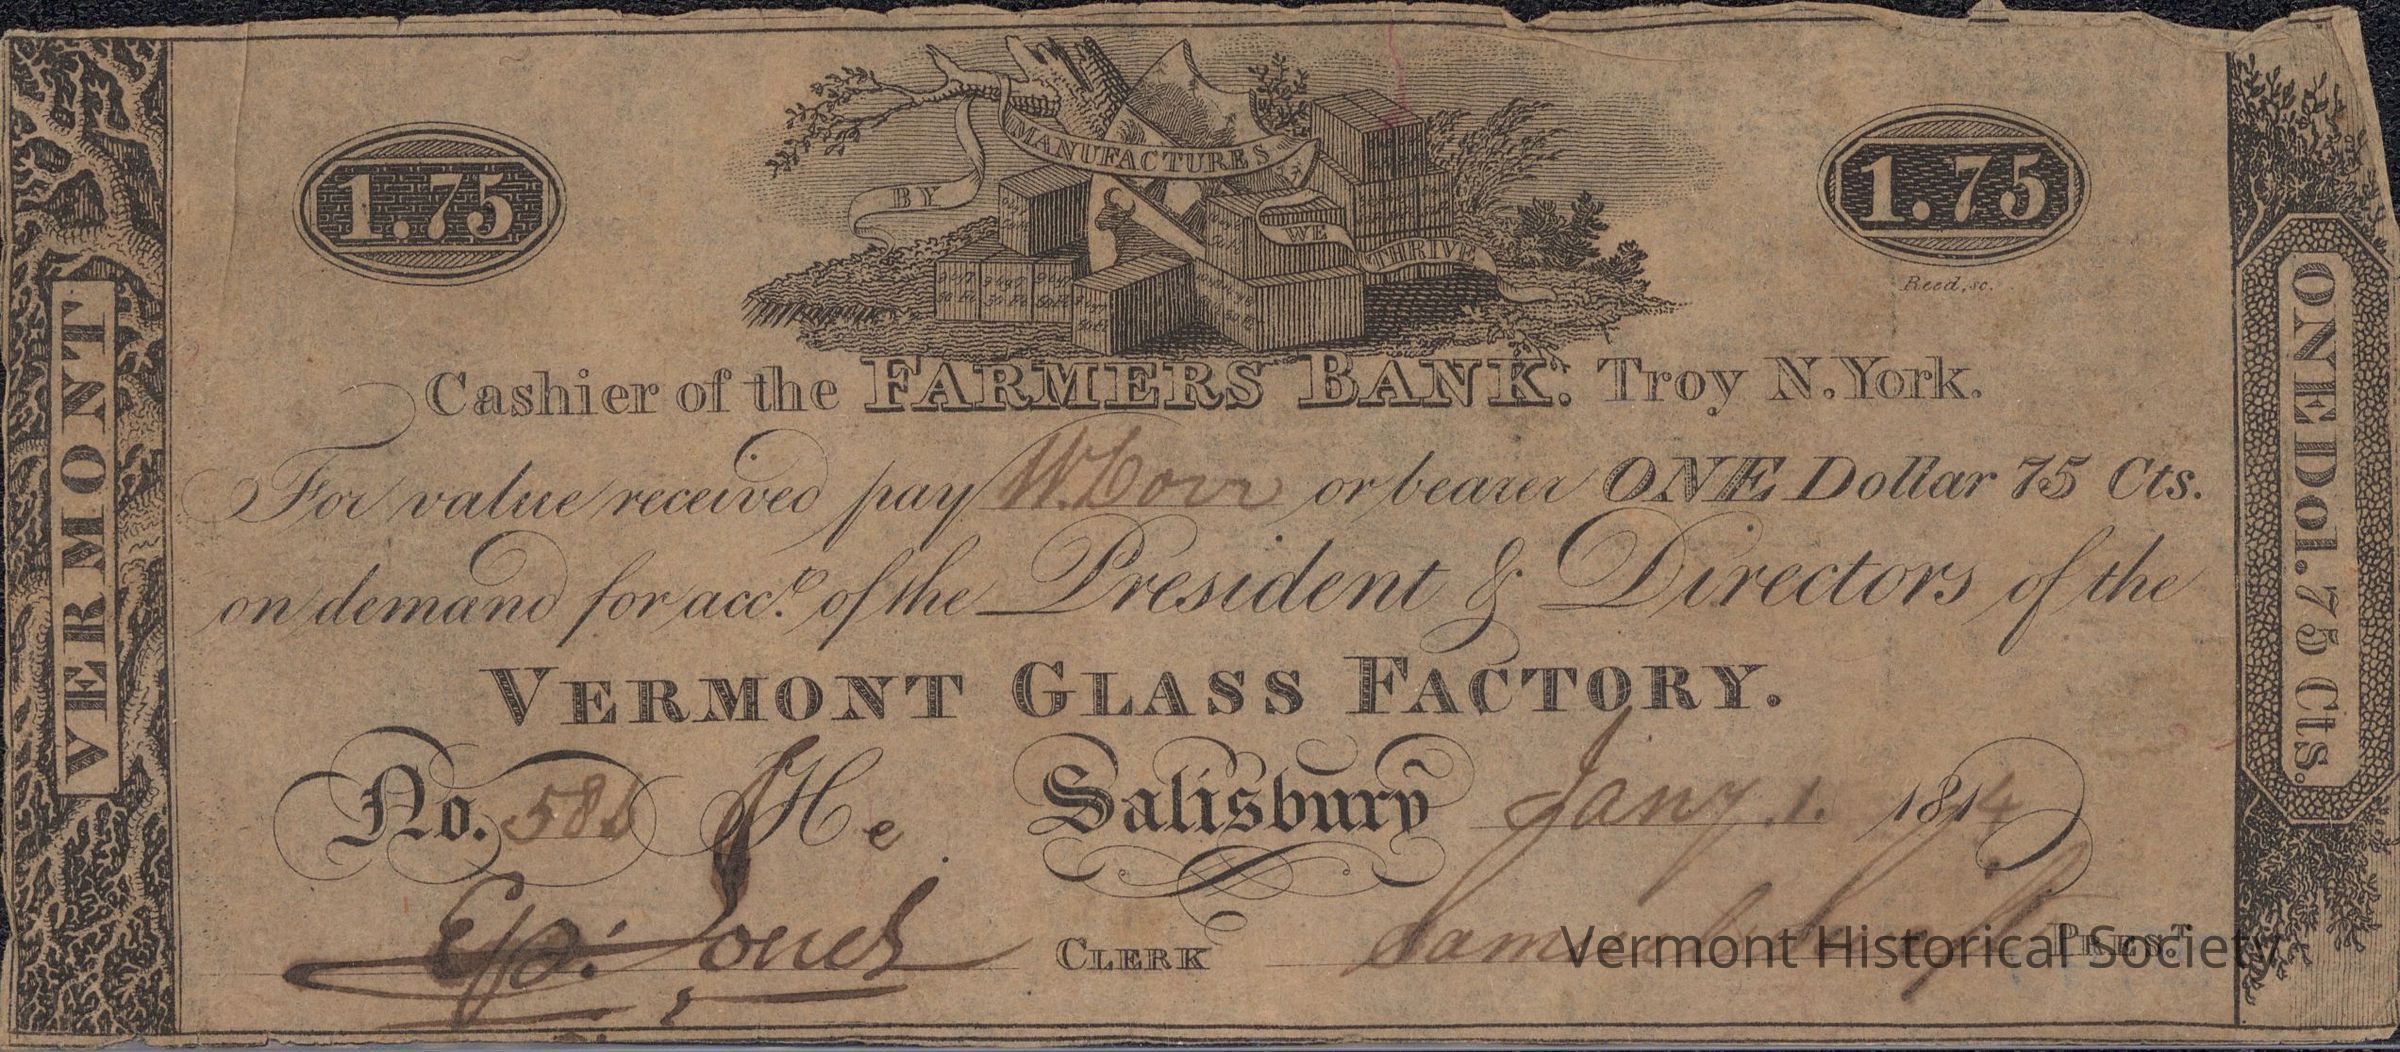 MANUFACTURES
BY
WE
THRIVE
1.75
1.75
Reed, sc.
VERMONT
ONE Dol. 75 Cts.
Cashier of the FARMERS BANK. Troy N. York.
For value received pay W. Dorr or bearer ONE Dollar 75 Cts.
on demand for acct. of the President & Directors of the
VERMONT GLASS FACTORY.
No. 586 He Salisbury Jany. 1. 1814
Ep. Jones CLERK Samuel Swift PREST.
Vermont Historical Society